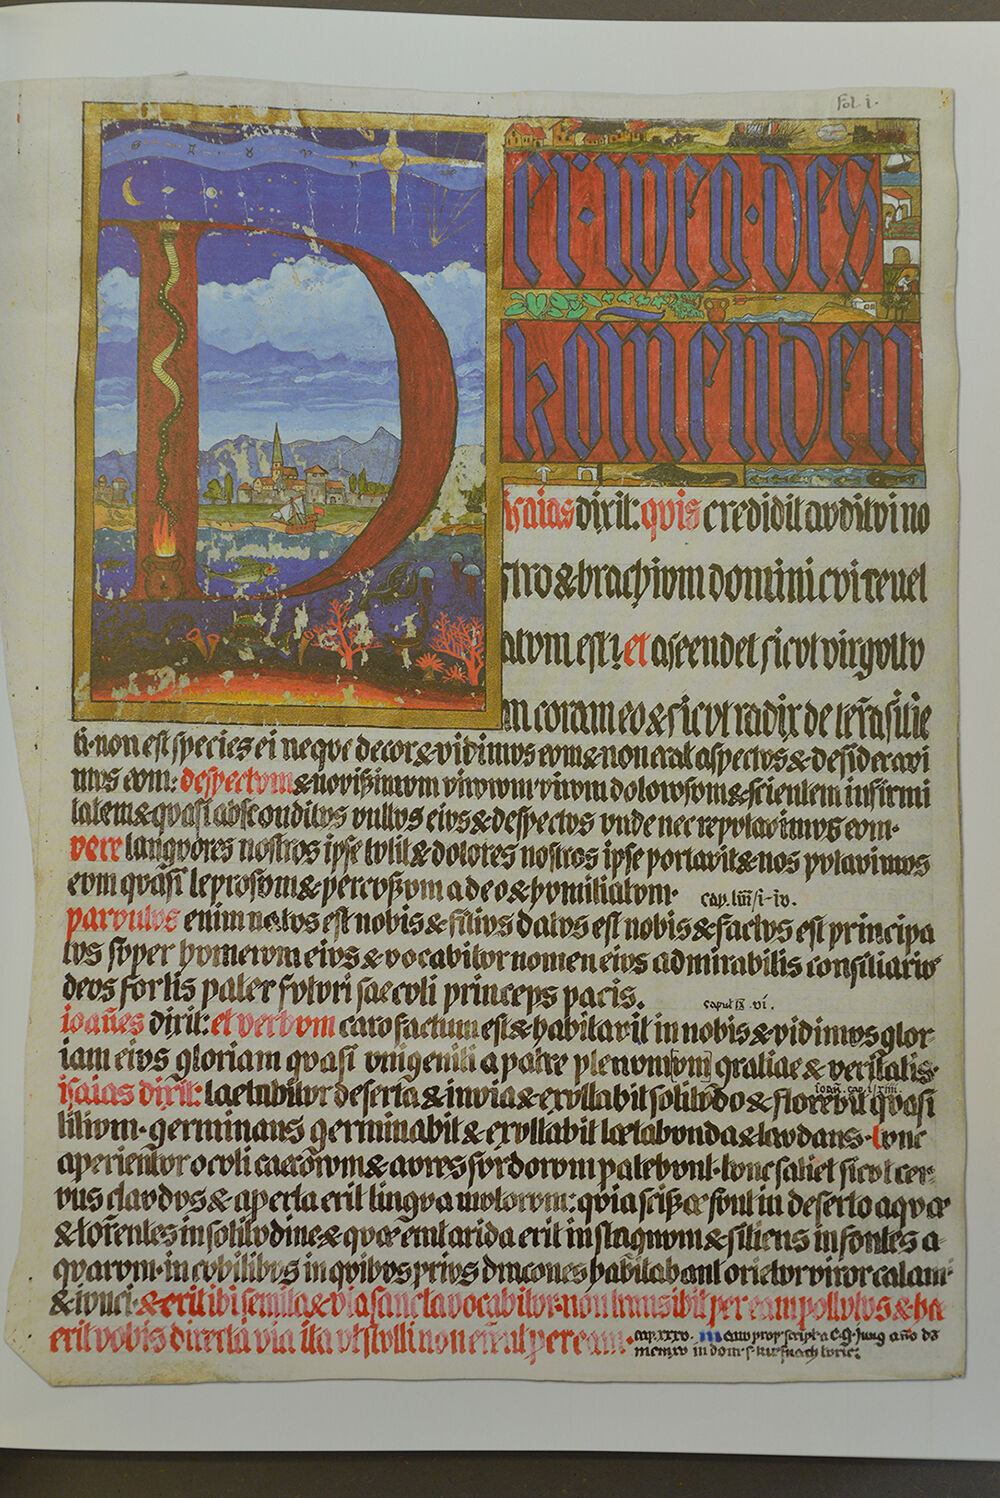 fol. i.
Der·weg·des
komenden
isaias dixit: quis credidit auditui no
stro & brachium domini cui reuel
atum est? et ascendet sicut virgultu
m coram eo & sicut radix de terra sitie
ti· non est species ei neque decor & vidimus eum & non erat aspectus & desideravi
mus eum: despectum & novissimum virorum virum dolorosum & scientem infirmi
tatem & quasi absconditus vultus eius & despectus unde nec reputavimus eum·
vere languores nostros ipse tulit & dolores nostros ipse portavit & nos putavimus
eum quasi leprosum & percussum a deo & humiliatum· cap. liiii/i-iv.
parvulus enim natus est nobis & filius datus est nobis & factus est principa
tus super humerum eius & vocabitur nomen eius admirabilis consiliarius
deus fortis pater futuri saeculi princeps pacis. caput ix. vi.
ioañes dixit: et verbum caro factum est & habitavit in nobis & vidimus glor-
iam eius gloriam quasi unigeniti a patre plenum gratiae & veritatis·
ioañ. cap. i/xiiii.
isaias dixit: laetabitur deserta & invia & exultabit solitudo & florebit quasi
lilium· germinans germinabit & exultabit laetabunda & laudans· tunc
aperientur oculi caecorum & aures surdorum patebunt· tunc saliet sicut cer-
vus claudus & aperta erit lingua mutorum: quia scissae sunt in deserto aquae
& torrentes in solitudine & quae erat arida erit in stagnum & sitiens in fontes a-
quarum· in cubilibus in quibus prius dracones habitabant orietur viror calami
& iunci· & erit ibi semita & via sancta vocabitur· non transibit per eam pollutus & hæc
erit vobis directa via ita ut stulti non errent per eam· cap. xxxv. manu propr. scripta C.G. Jung año dñi
mcmxv in domu s. kusnacht turic: